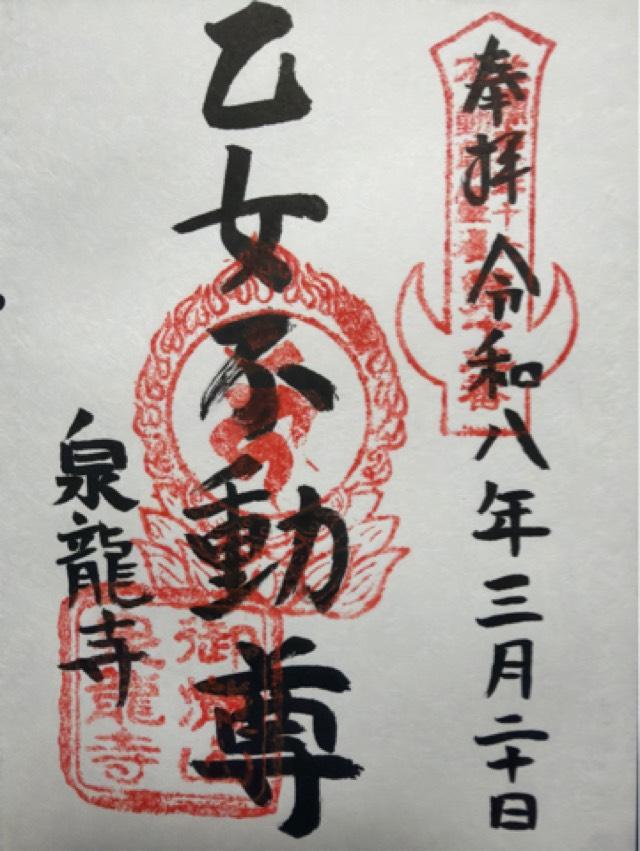 奉拝 令和八年三月二十日
乙女不動尊
泉龍寺
泉龍寺